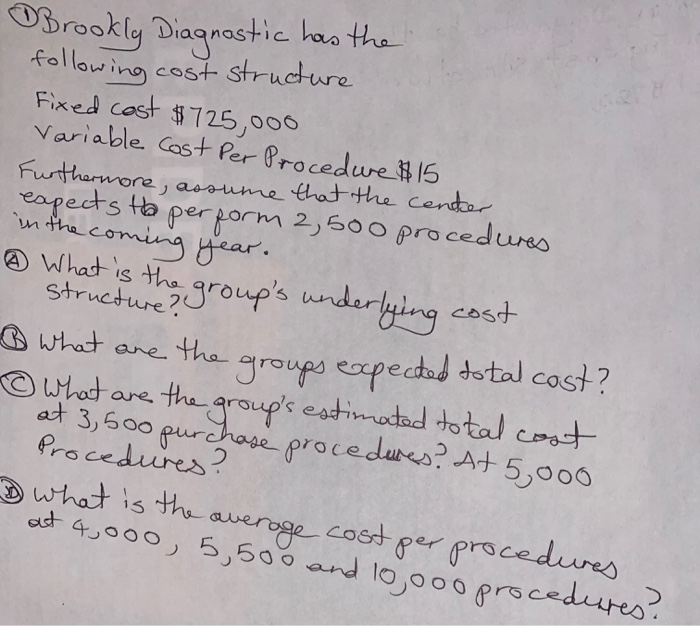 ① Brookly Diagnostic has the
following cost structure
Fixed cost $725,000
Variable Cost Per Procedure $15
Furthermore, assume that the center
expects to perform 2,500 procedures
in the coming year.
Ⓐ What is the group's underlying cost
structure?
Ⓑ What are the groups expected total cost?
Ⓒ What are the group's estimated total cost
at 3,500 purchase procedures? At 5,000
Procedures?
Ⓓ What is the average cost per procedures
at 4,000, 5,500 and 10,000 procedures?